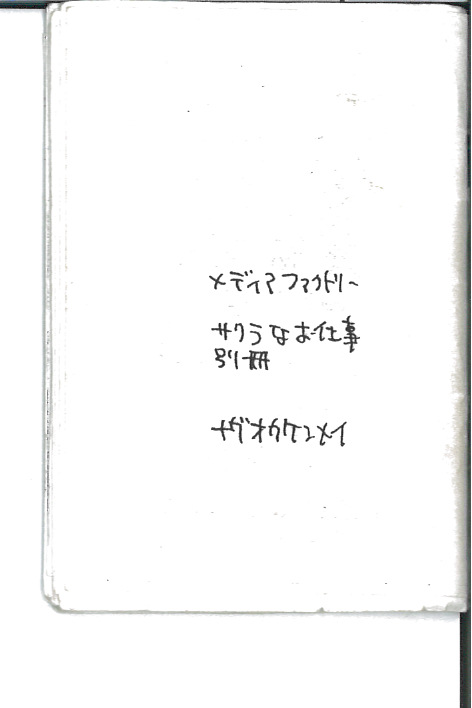 メディアファクトリー
サクラなお仕事
別冊
ナガオカケンメイ